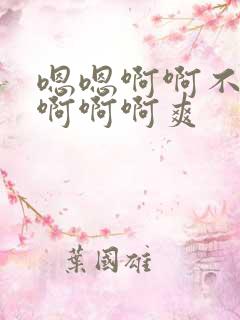 嗯嗯啊啊不
啊啊啊爽
葉國雄